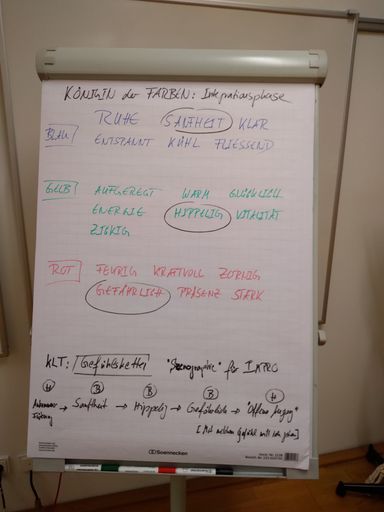 KÖNIGIN der FARBEN: Integrationsphase
RUHE SANFTHEIT KLAR
BLAU
ENTSPANNT KÜHL FLIESSEND
GELB AUFGEREGT WARM GLÜCKLICH
ENERGIE HIPPELIG VITALITÄT
ZICKIG
ROT FEURIG KRAFTVOLL ZORNIG
GEFÄHRLICH PRÄSENZ STARK
KLT: Gefühlskette "Szenographie" für IMPRO
H B B B H
→ Sanftheit → Hippelig → Gefährlich → "Offener
[Mit welchem Gefühl will ich gehen]
Soennecken